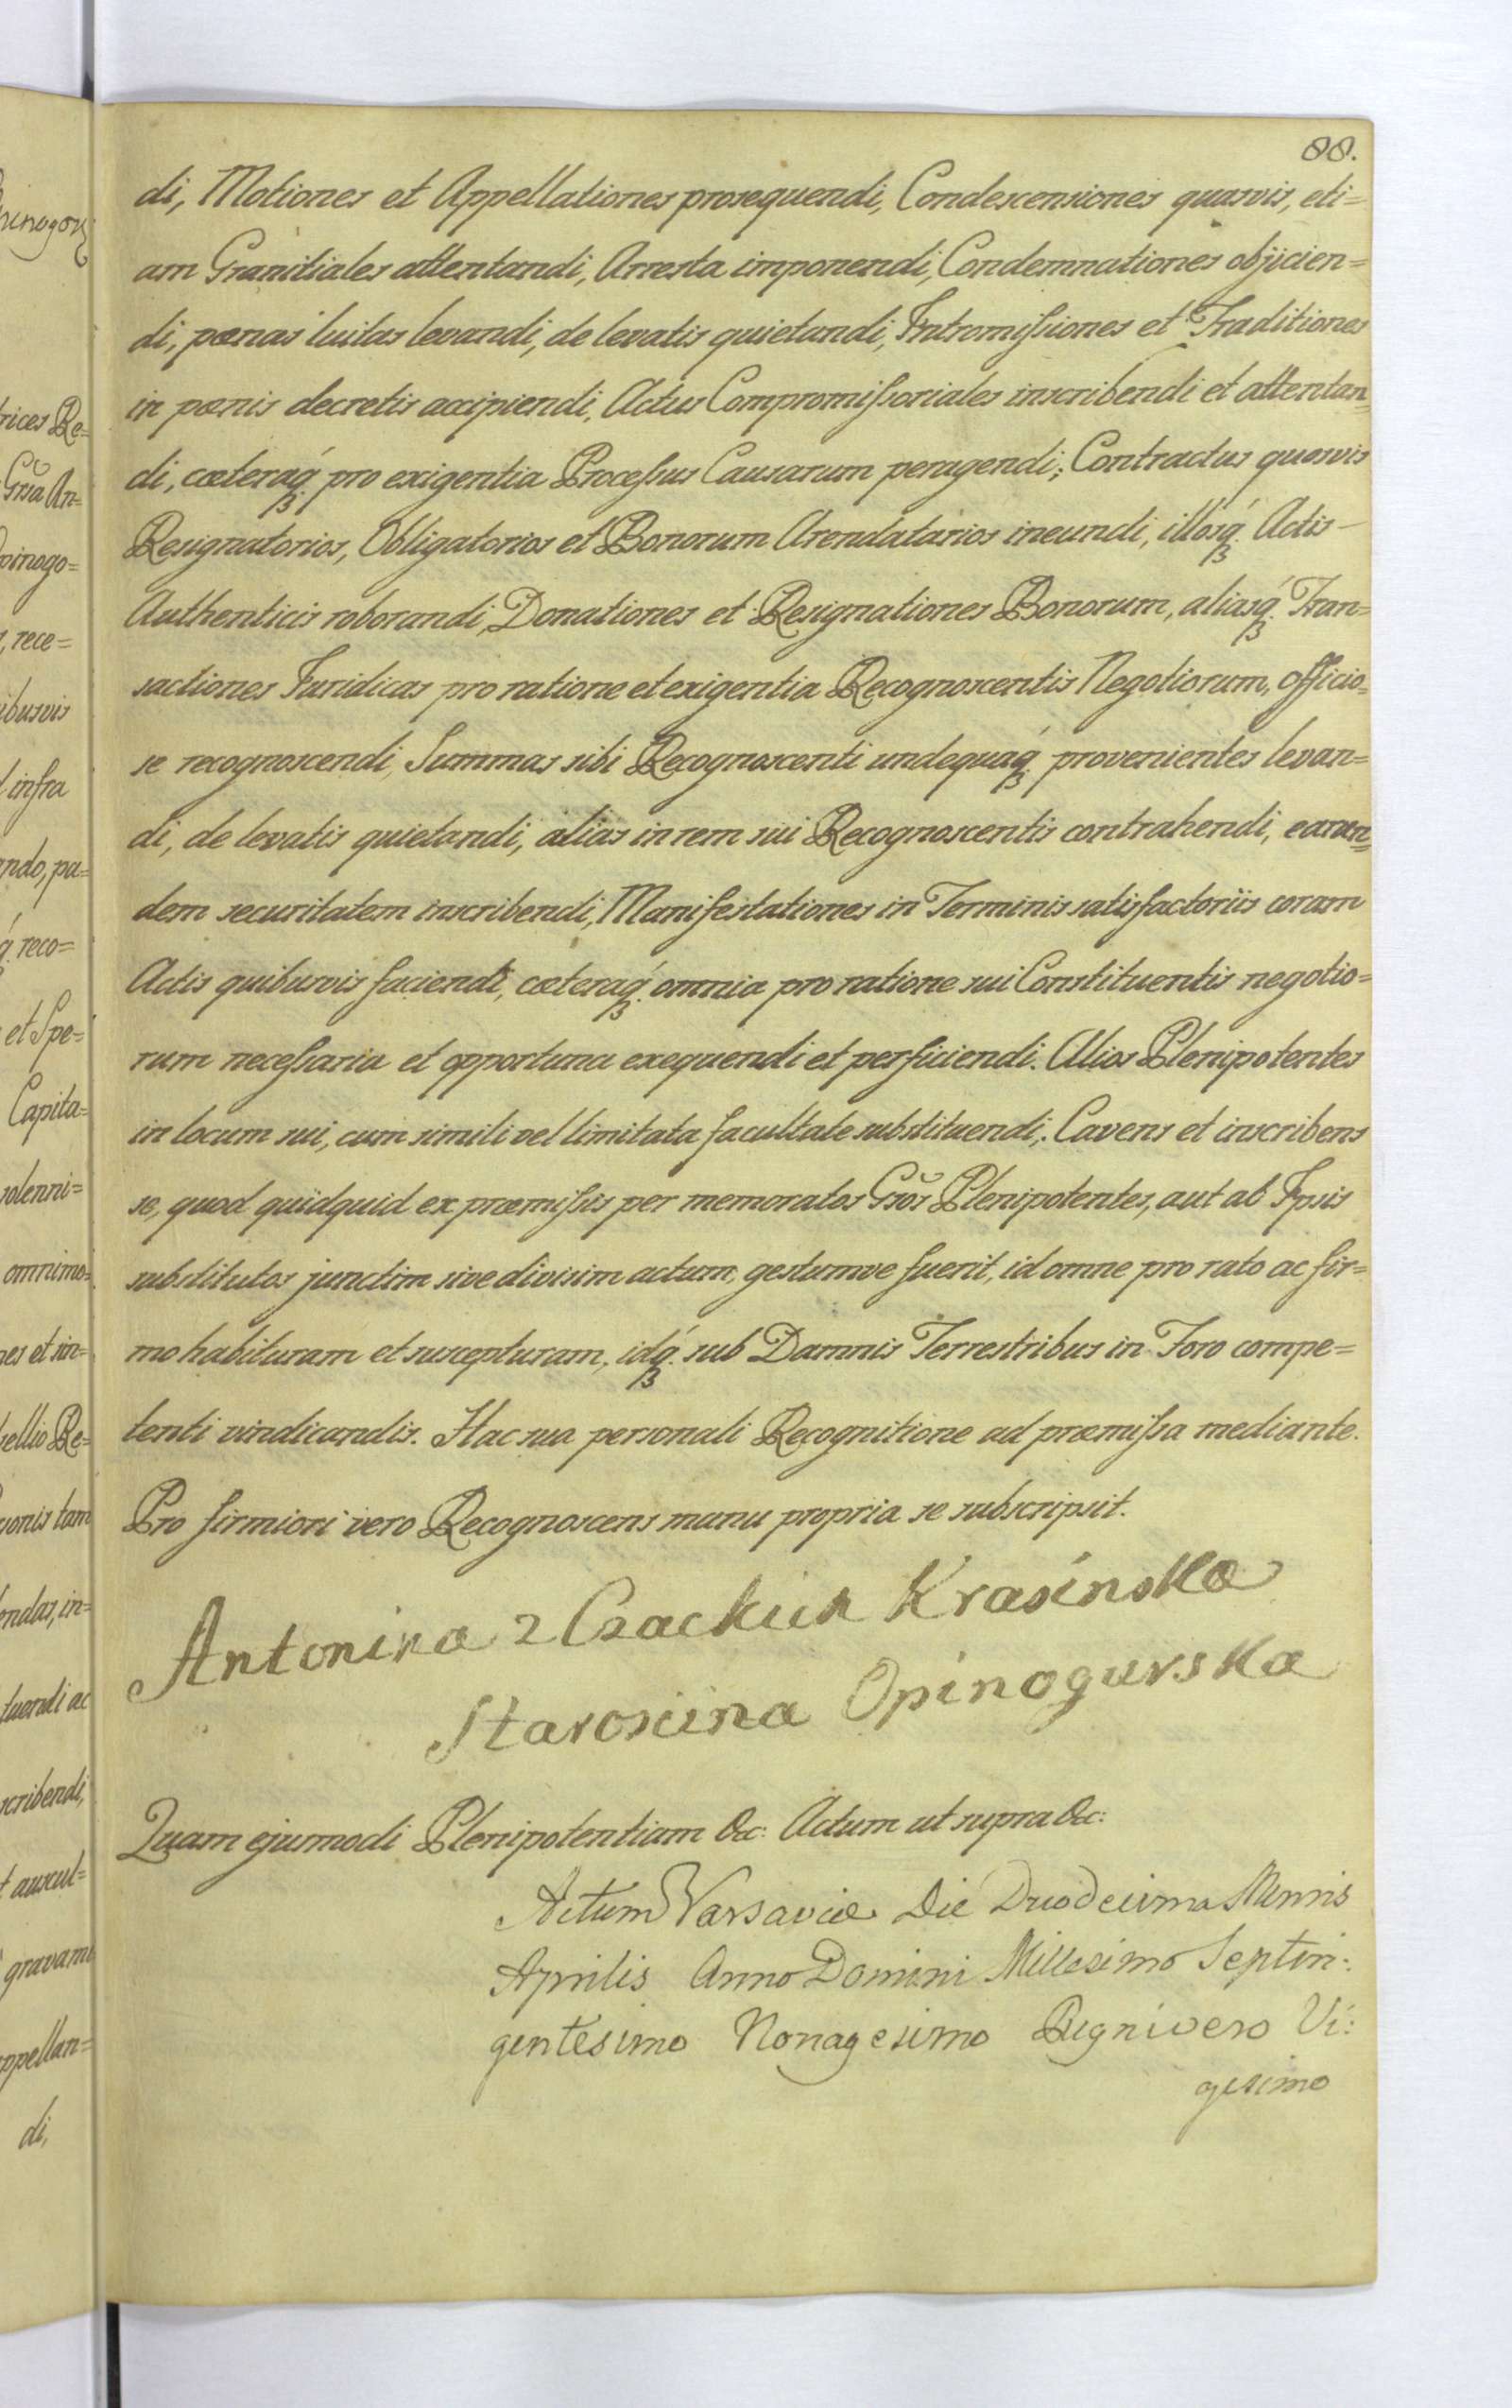 88.
di, Motiones et Appellationes prosequendi, Condescensiones quasvis, eti=
am Granitiales attentandi, Arresta imponendi, Condemnationes objicien=
di, pænas luitas levandi, de levatis quietandi, Intromissiones et Traditiones
in pænis decretis accipiendi, Actus Compromissoriales inscribendi et attentan=
di, cæteraq́ pro exigentia Processus Causarum peragendi; Contractus quosvis
Resignatorios, Obligatorios et Bonorum Arendatarios ineundi, illosq́ Actis
Authenticis roborandi, Donationes et Resignationes Bonorum, aliasq́ Tran=
sactiones Juridicas pro ratione et exigentia Recognoscentis Negotiorum, officio=
se recognoscendi, Summas sibi Recognoscenti undequaq́ provenientes levan=
di, de levatis quietandi, alias in rem sui Recognoscentis contrahendi, earun=
dem securitatem inscribendi, Manifestationes in Terminis satisfactoriis coram
Actis quibusvis faciendi, cæteraq́ omnia pro ratione sui Constituentis negotio=
rum necessaria et opportuna exequendi et perficiendi. Alios Plenipotentes
in locum sui, cum simili vel limitata facultate substituendi; Cavens et inscribens
se, quod quidquid ex præmissis per memoratos Gsõs Plenipotentes, aut ab Ipsis
substitutos junctim sive divisim actum, gestumve fuerit, id omne pro rato ac fir=
mo habituram et suscepturam, idq́ sub Damnis Terrestribus in Foro compe=
tenti vindicandis. Hac sua personali Recognitione ad præmissa mediante.
Pro firmiori vero Recognoscens manu propria se subscripsit.
Antonina z Czackich Krasińska
Staroscina Opinogurska
Quam ejusmodi Plenipotentiam &c: Actum ut supra &c:
Actum Varsaviæ Die Duodecima Mensis
Aprilis Anno Domini Millesimo Septin:
gentesimo Nonagesimo Regni vero Vi:
gesimo
hinogor
rices Re=
Gsa An=
pinogo=
, rece=
ibusvis
infra
ando, pa=
q́ reco=
et Spe=
Capita=
solenni=
omnimo=
nes et sin=
sellio Re=
ionis tam
endas, in=
tuendi ac
scribendi,
t auscul=
gravami
appellan=
di,